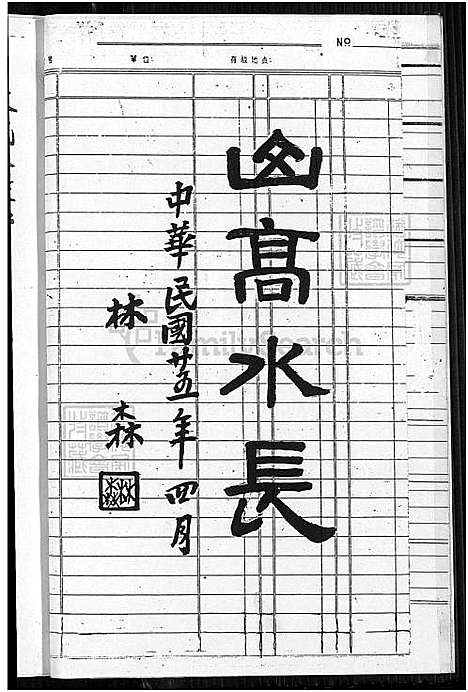 No
單位:
存放地点:
山高水長
中華民國廿五年四月
林森
林森
FamilySearch